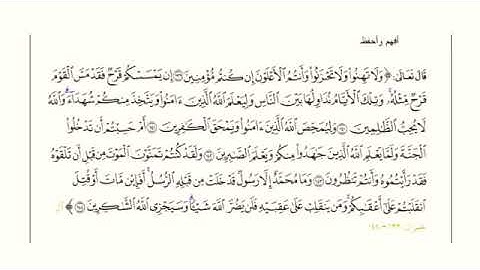 أفهم وأحفظ
قَالَ تَعَالَى: ﴿ وَلَا تَهِنُوا۟ وَلَا تَحْزَنُوا۟ وَأَنتُمُ ٱلْأَعْلَوْنَ إِن كُنتُم مُّؤْمِنِينَ ١٣٩ إِن يَمْسَسْكُمْ قَرْحٌ فَقَدْ مَسَّ ٱلْقَوْمَ
قَرْحٌ مِّثْلُهُۥ وَتِلْكَ ٱلْأَيَّامُ نُدَاوِلُهَا بَيْنَ ٱلنَّاسِ وَلِيَعْلَمَ ٱللَّهُ ٱلَّذِينَ ءَامَنُوا۟ وَيَتَّخِذَ مِنكُمْ شُهَدَآءَ وَٱللَّهُ
لَا يُحِبُّ ٱلظَّٰلِمِينَ ١٤٠ وَلِيُمَحِّصَ ٱللَّهُ ٱلَّذِينَ ءَامَنُوا۟ وَيَمْحَقَ ٱلْكَٰفِرِينَ ١٤١ أَمْ حَسِبْتُمْ أَن تَدْخُلُوا۟
ٱلْجَنَّةَ وَلَمَّا يَعْلَمِ ٱللَّهُ ٱلَّذِينَ جَٰهَدُوا۟ مِنكُمْ وَيَعْلَمَ ٱلصَّٰبِرِينَ ١٤٢ وَلَقَدْ كُنتُمْ تَمَنَّوْنَ ٱلْمَوْتَ مِن قَبْلِ أَن تَلْقَوْهُ
فَقَدْ رَأَيْتُمُوهُ وَأَنتُمْ تَنظُرُونَ ١٤٣ وَمَا مُحَمَّدٌ إِلَّا رَسُولٌ قَدْ خَلَتْ مِن قَبْلِهِ ٱلرُّسُلُ أَفَإِي۟ن مَّاتَ أَوْ قُتِلَ
ٱنقَلَبْتُمْ عَلَىٰٓ أَعْقَٰبِكُمْ وَمَن يَنقَلِبْ عَلَىٰ عَقِبَيْهِ فَلَن يَضُرَّ ٱللَّهَ شَيْـًٔا وَسَيَجْزِى ٱللَّهُ ٱلشَّٰكِرِينَ ١٤٤ ﴾